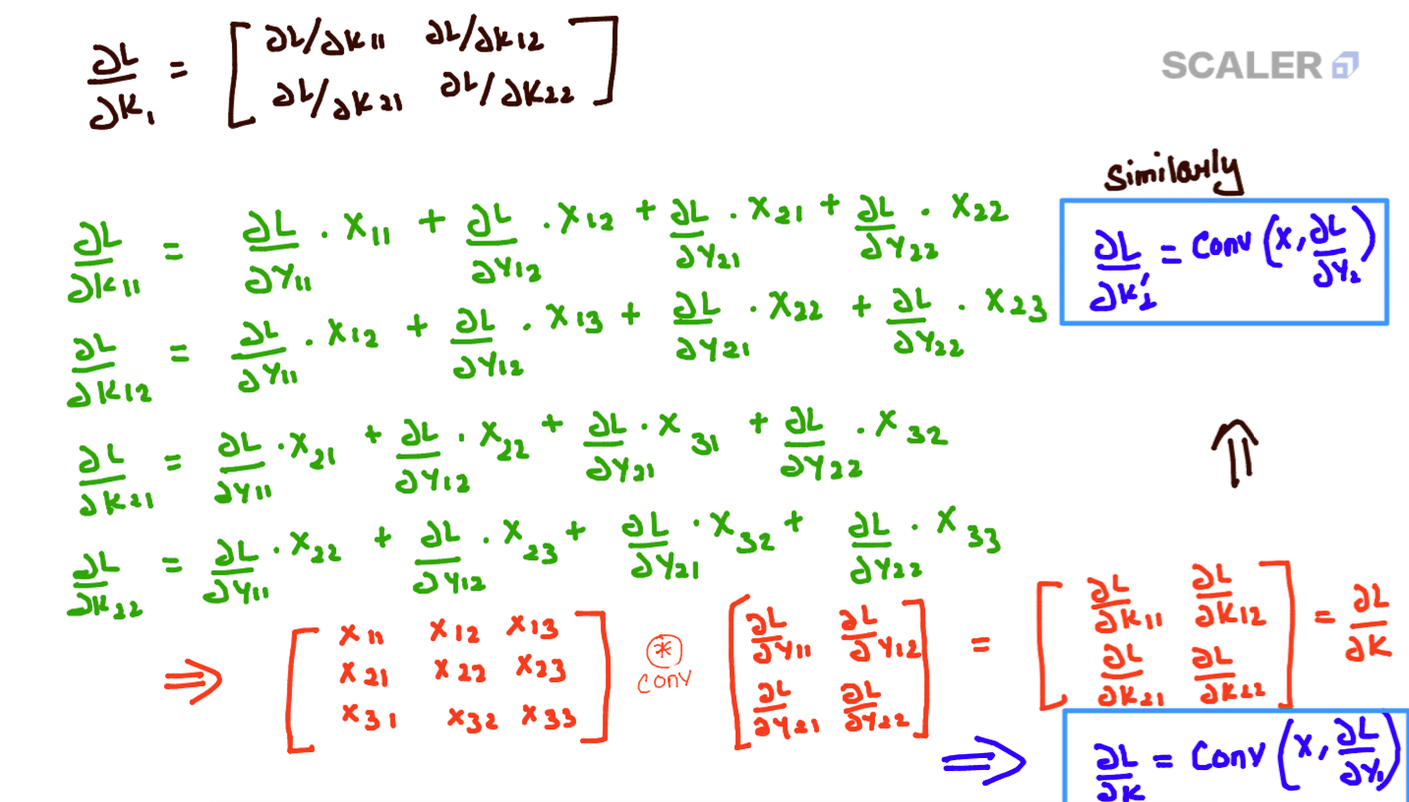 ∂L/∂K₁ = [ ∂L/∂K11 ∂L/∂K12
∂L/∂K21 ∂L/∂K22 ]
SCALER
Similarly
∂L/∂K11 = ∂L/∂Y11 · X11 + ∂L/∂Y12 · X12 + ∂L/∂Y21 · X21 + ∂L/∂Y22 · X22
∂L/∂K₂ = Conv (X, ∂L/∂Y₂)
∂L/∂K12 = ∂L/∂Y11 · X12 + ∂L/∂Y12 · X13 + ∂L/∂Y21 · X22 + ∂L/∂Y22 · X23
∂L/∂K21 = ∂L/∂Y11 · X21 + ∂L/∂Y12 · X22 + ∂L/∂Y21 · X31 + ∂L/∂Y22 · X32
⇑
∂L/∂K22 = ∂L/∂Y11 · X22 + ∂L/∂Y12 · X23 + ∂L/∂Y21 · X32 + ∂L/∂Y22 · X33
⇒ [ X11 X12 X13
X21 X22 X23
X31 X32 X33 ]
⊛
Conv
[ ∂L/∂Y11 ∂L/∂Y12
∂L/∂Y21 ∂L/∂Y22 ]
= [ ∂L/∂K11 ∂L/∂K12
∂L/∂K21 ∂L/∂K22 ] = ∂L/∂K
⇒ ∂L/∂K = Conv (X, ∂L/∂Y₁)